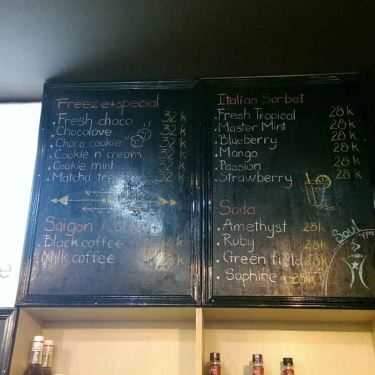 Freeze special
Fresh choco 32k
Chocolave 32k
Choco cookie 32k
Cookie n' cream 32k
Cookie mint 32k
Matcha tree 32k
Saigon
Black coffee k
Milk coffee k
Italian Sorbet
Fresh Tropical 28k
Master Mint 28k
Blueberry 28k
Mango 28k
Passion 28k
Strawberry 28k
Soda
Amethyst 28k
Ruby 28k
Green field 28k
Saphire 28k